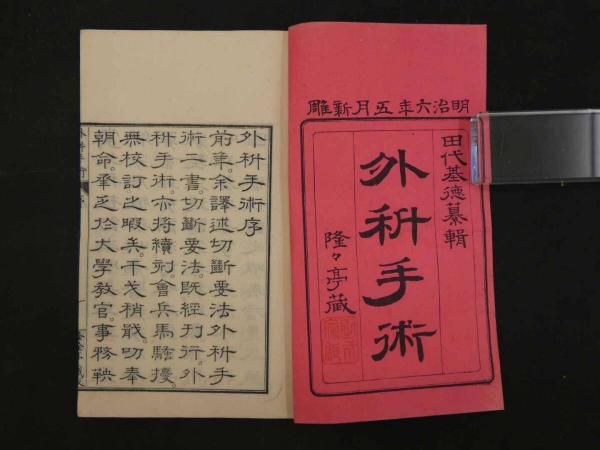 明治六年五月新雕
田代基德纂輯
外科手術
隆々亭蔵
外科手術序
前年余譯述切斷要法外科手
術二書切斷要法既經刊行外
科手術亦將續刻會兵馬騷擾
無校訂之暇矣干戈稍戢叨奉
朝命承乏於大學教官事務鞅